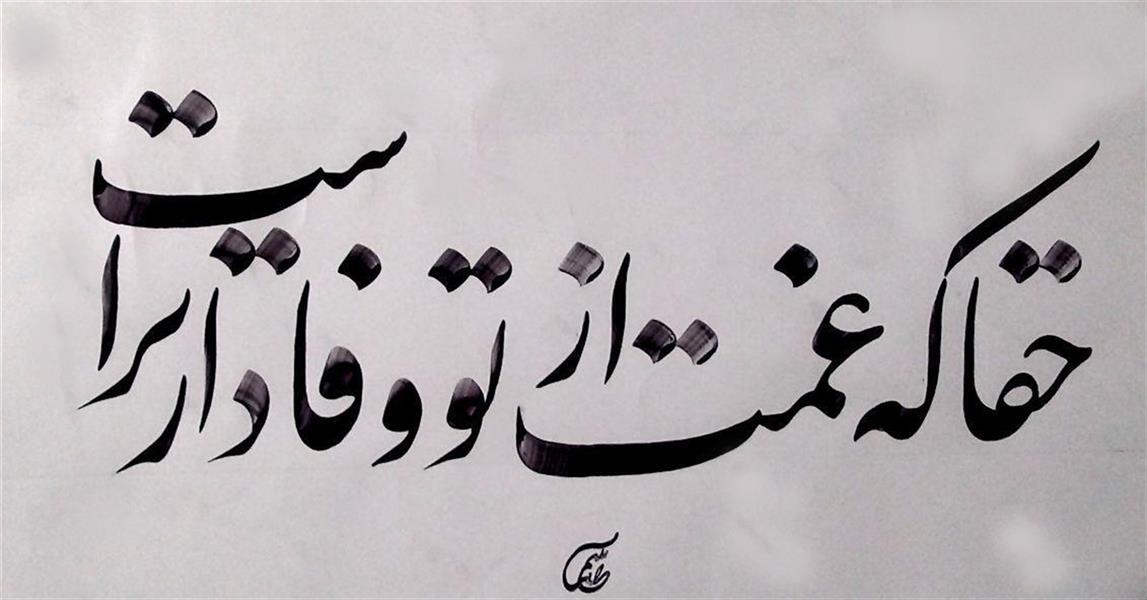 حقا که غمت از تو وفادارتر است